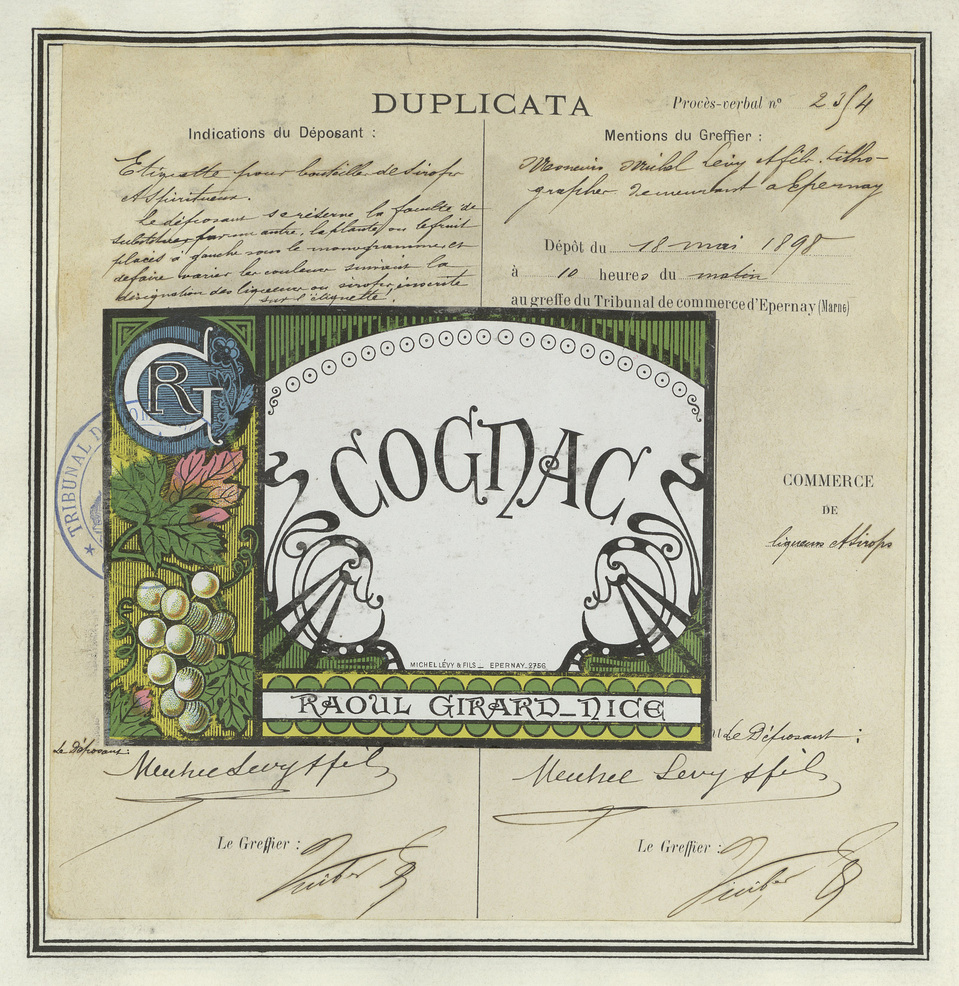 DUPLICATA
Procès-verbal nº 2354
Indications du Déposant :
Etiquette pour bouteilles de sirops
et Spiritueux.
Le déposant se réserve la faculté de
substituer par un autre, la plante, ou le fruit
placés à gauche sous le monogramme, et
de faire varier les couleurs suivant la
désignation des liqueurs ou sirops, inscrite
sur l'étiquette.
Mentions du Greffier :
Messieurs Michel Lévy & fils. litho-
graphes demeurant a Epernay
Dépôt du 18 mai 1898
à 10 heures du matin
au greffe du Tribunal de commerce d'Epernay (Marne)
GR
TRIBUNAL D COM
COGNAC
MICHEL LÉVY & FILS _ EPERNAY_2756
RAOUL GIRARD_NICE
COMMERCE
DE
liqueurs et Sirops
Le Déposant :
Michel Levy & fils
Le Greffier :
Le Déposant :
Michel Levy & fils
Le Greffier :